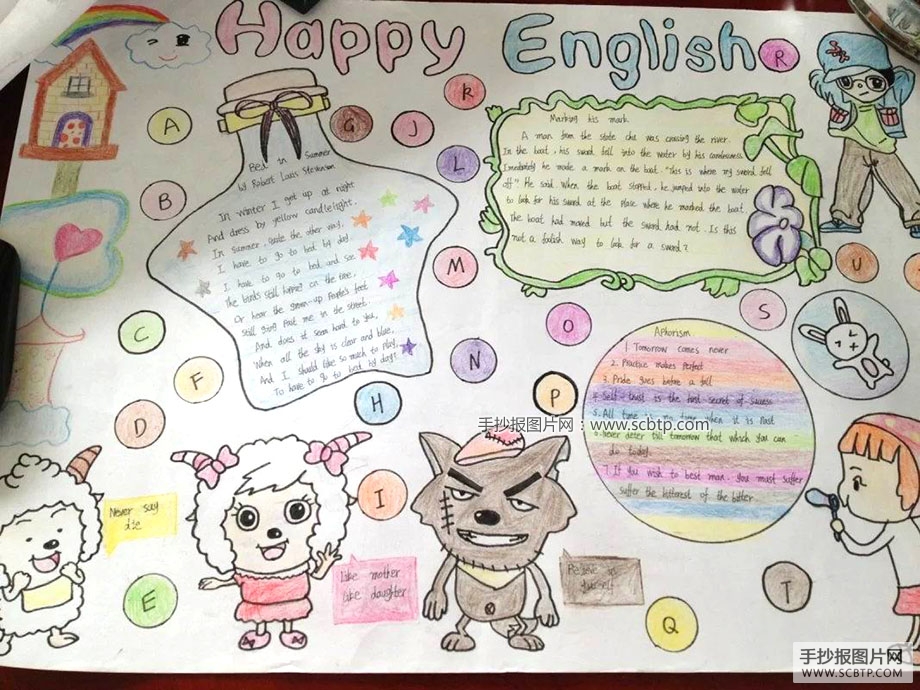 Happy English
R
K
A
G
J
L
B
M
U
C
F
D
H
N
O
S
P
I
E
Q
T
Bed in Summer
by Robert Louis Stevenson
In Winter I get up at night
And dress by yellow candlelight.
In Summer, quite the other way,
I have to go to bed by day.
I have to go to bed and see
The birds still hopping on the tree,
Or hear the grown-up people's feet
Still going past me in the street.
And does it seem hard to you,
When all the sky is clear and blue,
And I should like so much to play,
To have to go to bed by day?
Marking his mark
A man from the state chu was crossing the river.
In the boat, his sword fell into the water by his carelessness.
Immediately he made a mark on the boat. "This is where my sword fell
off." He said. When the boat stopped, he jumped into the water
to look for his sword at the place where he marked the boat.
The boat had moved but the sword had not. Is this
not a foolish way to look for a sword?
Aphorism
1. Tomorrow comes never
2. Practice makes perfect
3. Pride goes before a fall
4. Self-trust is the first secret of success
5. All time is no time when it is past
6. Never deter till tomorrow that which you can
do today.
7. If you wish to best man. you must suffer
suffer the bitterest of the bitter.
手抄报图片网：www.scbtp.com
Never say
die
Like mother
like daughter
Believe in
yourself
手抄报图片网
WWW.SCBTP.COM